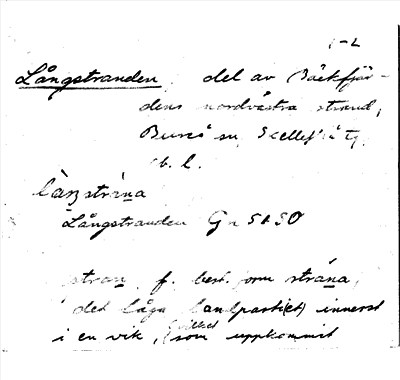 1-2
Långstranden, del av Bäckfjär-
dens nordvästra strand,
Bureå sn, Skellefteå tg.
Vb. l.
làŋstràna
Långstranden Gn 5150
stran f. best. form strána,
det låga landparti(et) innerst
i en vik, (vilket) som uppkommit